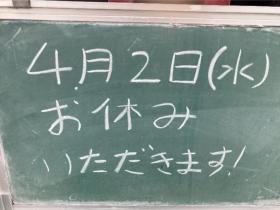 4月2日(水)
お休み
いただきます!